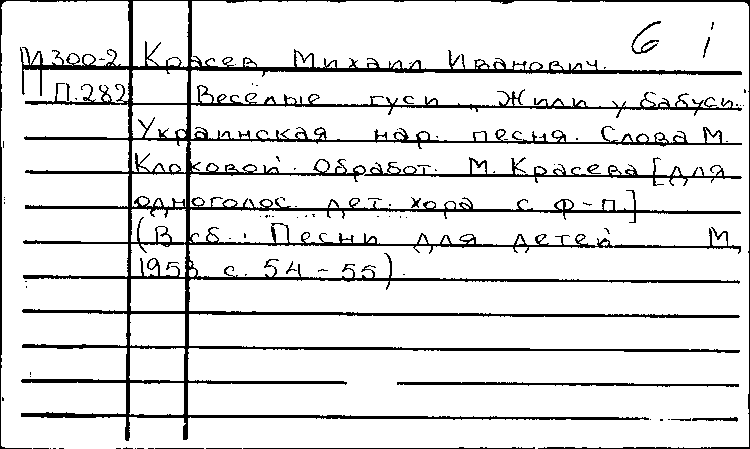 6 i
М 300-2 Красев, Михаил Иванович.
П.282 Весёлые гуси „Жили у бабуси.
Украинская нар. песня. Слова М.
Клоковой. Обработ. М. Красева [для
одноголос. дет. хора с ф-п.]
(В сб.: Песни для детей М,
1953 с. 54-55).